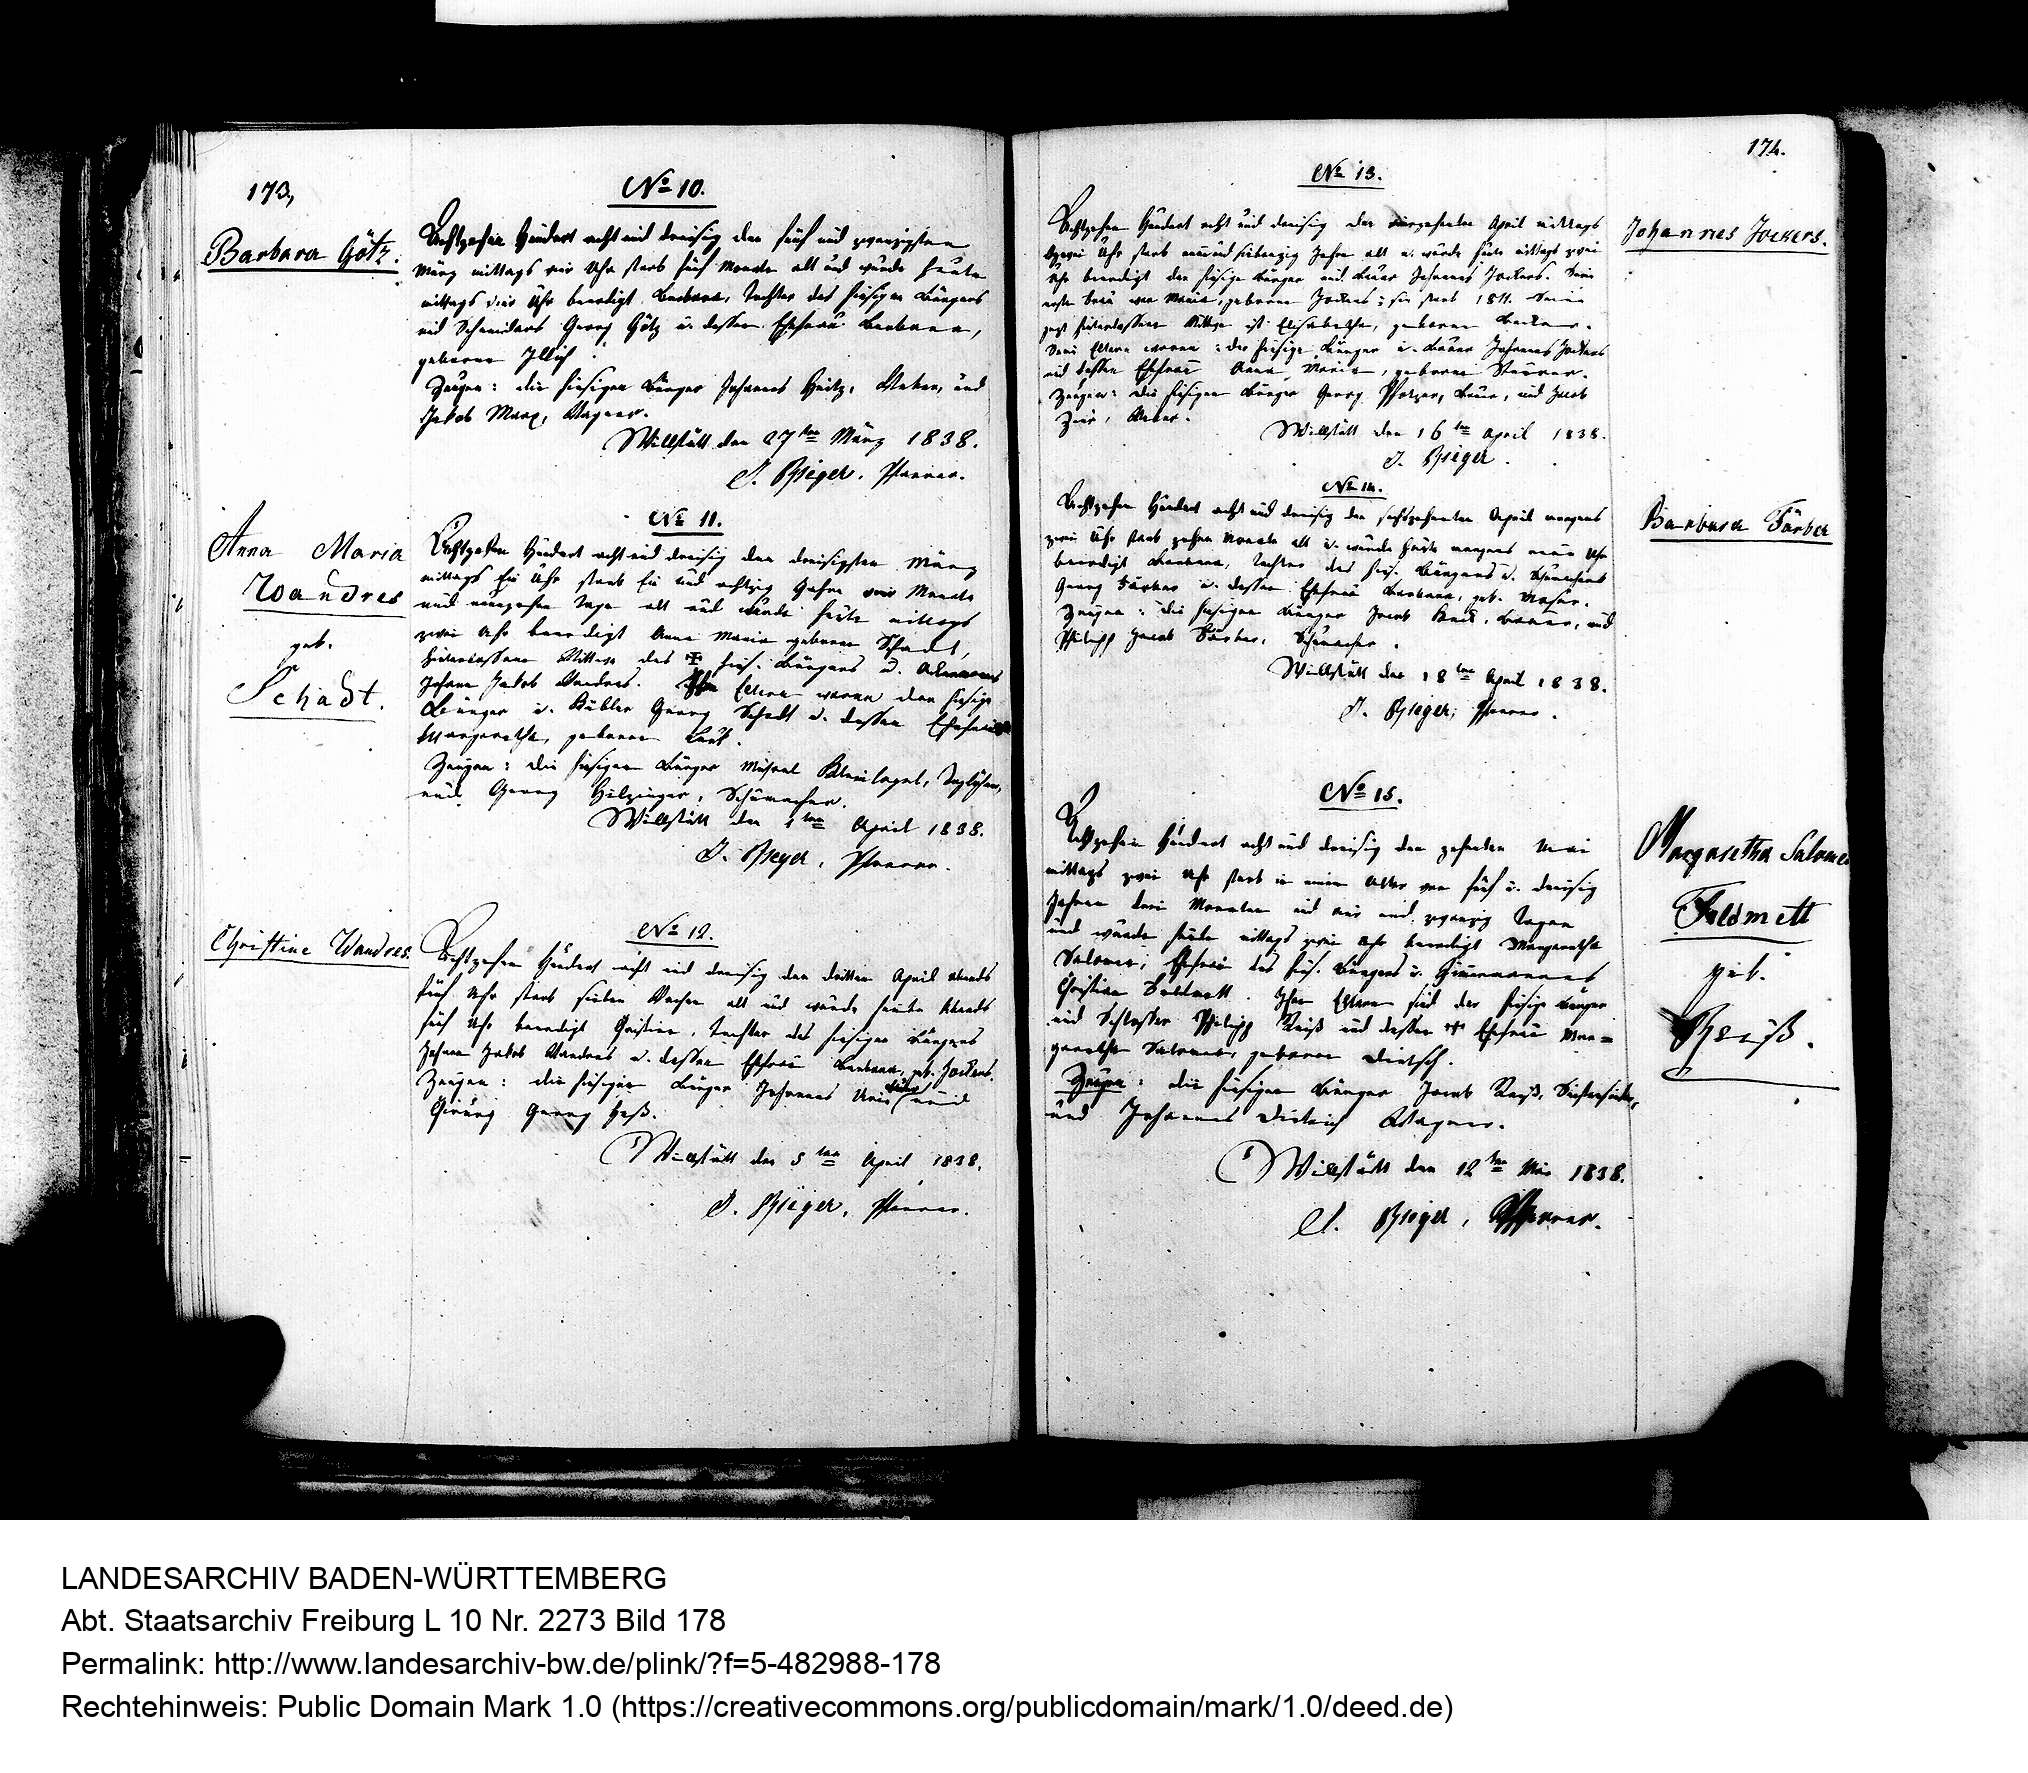 173,
No 10.
Barbara Götz.
Achtzehn Hundert acht und dreisig den fünf und zwanzigsten
März mittags vier Uhr starb fünf Monate alt und wurde heute
mittags vier Uhr beerdigt Barbara, Tochter des hiesigen Bürgers
und Schneiders Georg Götz u. dessen Ehefrau Barbara,
geborne
Zeugen: die hiesigen Bürger Johannes Heitz, Weber, und
Jakob Marx, Wagner.
Willstätt den 27ten März 1838.
J. Rieger, Pfarrer.
No 11.
Anna Maria
Wandres
geb.
Schadt.
Achtzehn Hundert acht und dreisig den dreisigsten März
mittags Ein Uhr starb Ein und achtzig Jahre vier Monate
und neunzehn Tage alt und wurde heute mittags
zwei Uhr beerdigt Anna Maria geborne Schadt,
hinterlassene Wittwe des hies. Bürgers u. Ackermanns
Johann Jakob Wandres. Ihre Eltern waren der hiesige
Bürger u. Kübler Georg Schadt u. dessen Ehefrau
Margaretha, geborne
Zeugen: die hiesigen Bürger Michael Taglöhner,
und Georg Hilzinger, Schumacher.
Willstätt den 1ten April 1838.
J. Rieger, Pfarrer.
No 12.
Christine Wandres.
Achtzehn Hundert acht und dreisig den dritten April abends
fünf Uhr starb sieben Wochen alt und wurde heute Abends
fünf Uhr beerdigt Christine, Tochter des hiesigen Bürgers
Johann Jakob Wandres u. dessen Ehefrau Barbara, geb. Jockers.
Zeugen: die hiesigen Bürger Johannes und
Chirurg Georg Heß.
Willstätt den 5ten April 1838.
J. Rieger, Pfarrer.
174.
No 13.
Johannes Jockers.
Achtzehn Hundert acht und dreisig den vierzehnten April mittags
zwei Uhr starb neunundsiebenzig Jahre alt u. wurde heute mittags zwei
Uhr beerdigt der hiesige Bürger und Bauer Johannes Jockers. Seine
erste Frau war Maria, geborne Jockers; sie starb 1811. Seine
jezt hinterlassene Wittwe ist Elisabetha, geborne
Seine Eltern waren: der hiesige Bürger u. Bauer Johannes Jockers
und dessen Ehefrau Anna Maria, geborne
Zeugen: die hiesigen Bürger Georg Bauer, und Jacob
Weber.
Willstätt den 16ten April 1838.
J. Rieger.
No 14.
Barbara Färber
Achtzehn Hundert acht und dreisig den sechszehnten April morgens
zwei Uhr starb zehen Monate alt u. wurde heute morgens neun Uhr
beerdigt Barbara, Tochter des hies. Bürgers u. Schumachers
Georg Färber u. dessen Ehefrau Barbara, geb.
Zeugen: die hiesigen Bürger Jacob Bauer, und
Philipp Jacob Färber, Schumacher.
Willstätt den 18ten April 1838.
J. Rieger, Pfarrer.
No 15.
Margaretha Salome
Feldmett
geb.
Reuß.
Achtzehn Hundert acht und dreisig den zehnten Mai
mittags zwei Uhr starb in einem Alter von fünf u. dreisig
Jahren drei Monaten und ein und zwanzig Tagen
und wurde heute mittags zwei Uhr beerdigt Margaretha
Salome, Ehefrau des hies. Bürgers u. Zimmermannes
Christian Feldmett. Ihre Eltern sind der hiesige Bürger
und Schlosser Philipp Reuß und dessen Ehefrau Mar=
garetha Salome, geborne Dietsch.
Zeugen: die hiesigen Bürger Jacob Reuß,
und Johannes Dietrich Wagner.
Willstätt den 12ten Mai 1838.
J. Rieger, Pfarrer.
LANDESARCHIV BADEN-WÜRTTEMBERG
Abt. Staatsarchiv Freiburg L 10 Nr. 2273 Bild 178
Permalink: http://www.landesarchiv-bw.de/plink/?f=5-482988-178
Rechtehinweis: Public Domain Mark 1.0 (https://creativecommons.org/publicdomain/mark/1.0/deed.de)